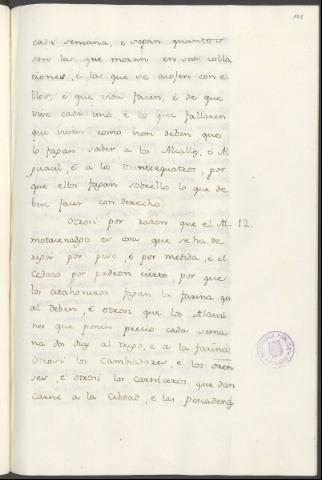 101
cada semana, e sepan quantos
son los que moran en sus colla
ciones, é los que se acojen con e
llos, é que vida facen, é de que
vive cada uno, é lo que fallaren
que viven como non deben que
lo fagan saber a los Alcalles, é Al
guacil, é a los veintequatro, por
que ellos fagan sobrello lo que de
ben facer con derecho.
Otrosi por razon que el Al- 12.
motazenadgo es cosa que se ha de
regir por peso, é por medida, e el
Cedazo por padron cierto, por que
los atahoneros fagan la farina qu
al deben, é otrosi que los Alami
nes que ponen precio cada sema
na dos dias al trigo, e a la farina:
otrosi los Cambiadores, e los oren
ses, é otrosi los Carniceros que dan
carne a la Cibdad, e las pescaderas